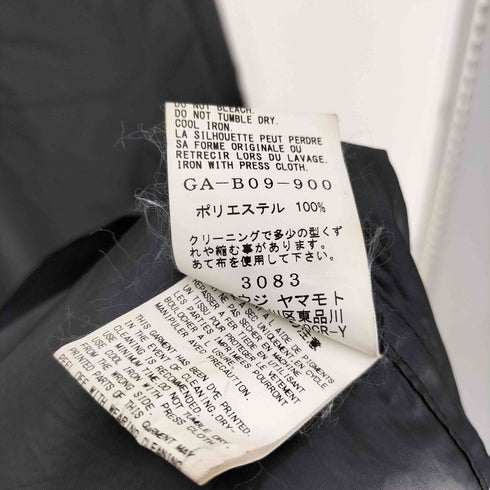 DO NOT BLEACH.
DO NOT TUMBLE DRY.
COOL IRON.
LA SILHOUETTE PEUT PERDRE
SA FORME ORIGINALE OU
RETRECIR LORS DU LAVAGE.
IRON WITH PRESS CLOTH.
GA-B09-900
ポリエステル 100%
クリーニングで多少の型くず
れや縮む事があります。
あて布を使用して下さい。
3083
ウジ ヤマモト
区東品川
CR-Y
LES PARTIES IMPRIMEES POURRONT
MANIPULER AVEC PRECAUTION.
THIS GARMENT HAS BEEN DYE PRINTED.
IN THE EVENT OF CLEANING, DRY-
CLEANING IS RECOMMENDED.
DO NOT TUMBLE DRY.
USE COOL IRON
WITH PRESS CLOTH
FROM THE WRONG SIDE.
PRINTED PARTS OF THIS GARMENT MAY
PEEL OFF WITH WEARING CLEANING